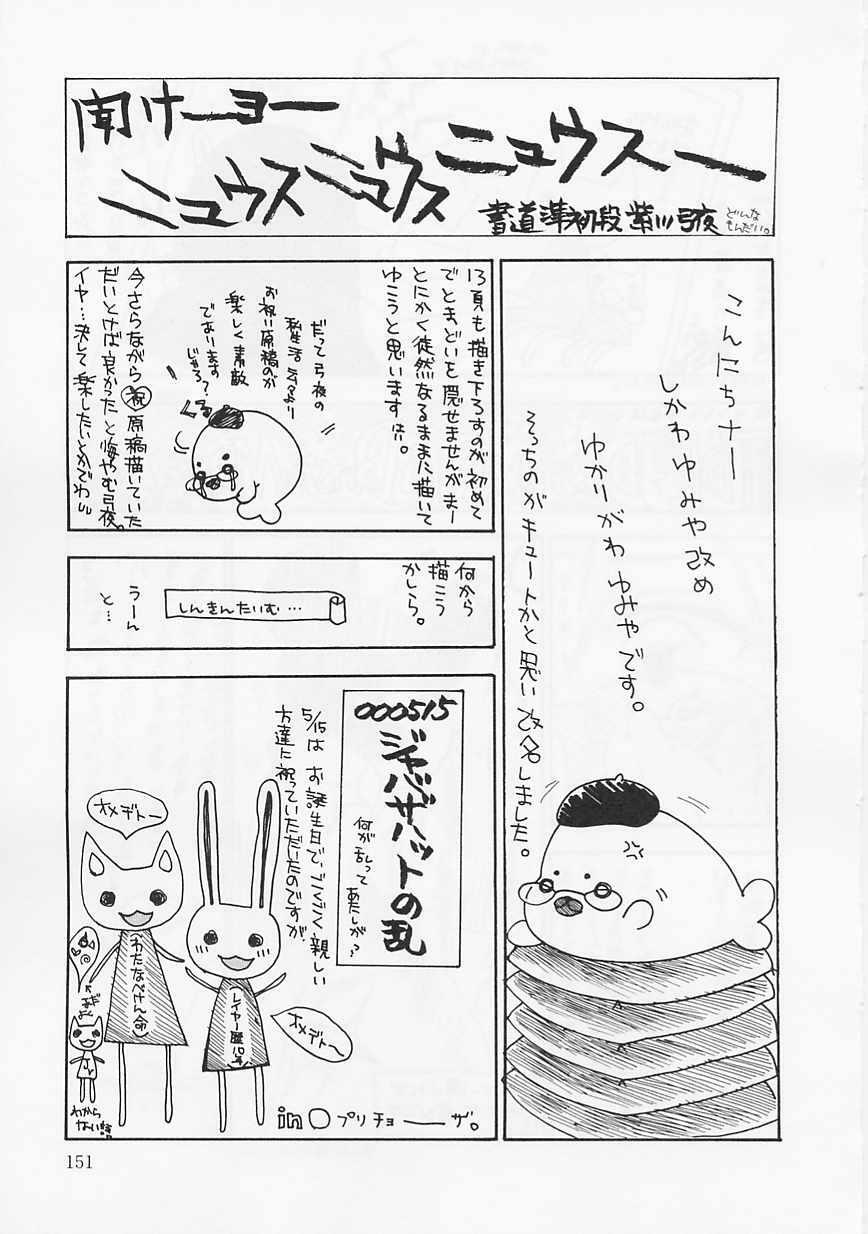 聞けーヨー
ニュウスニュウスニュウスー
書道準初段 紫川弓夜
どんな
もんだい。
こんにちナー
しかわゆみや改め
ゆかりがわ ゆみやです。
そっちのがキュートかと思い改名しました。
13頁も描き下ろすのが初めて
でとまどいを隠せませんがまー
とにかく徒然なるままに描いて
ゆこうと思います
だって弓夜の
私生活
より
お祝い原稿のが
楽しく素敵
であります
じゃろ?
今さらながら祝原稿描いていた
だいとけば良かったと悔やむ弓夜。
イヤ…決して楽したいとかでわ
何から
描こう
かしら。
しんきんたいむ…
うーん
と…
000515
ジャバザハットの乱
何が乱って
あたしが?
5/15は お誕生日で、ごくごく親しい
方達に祝っていただいたのですが
オメデトー
わたなべけん(命)
レイヤー歴10年
オメデトー
わから
ない
in○プリチョーーザ。
151